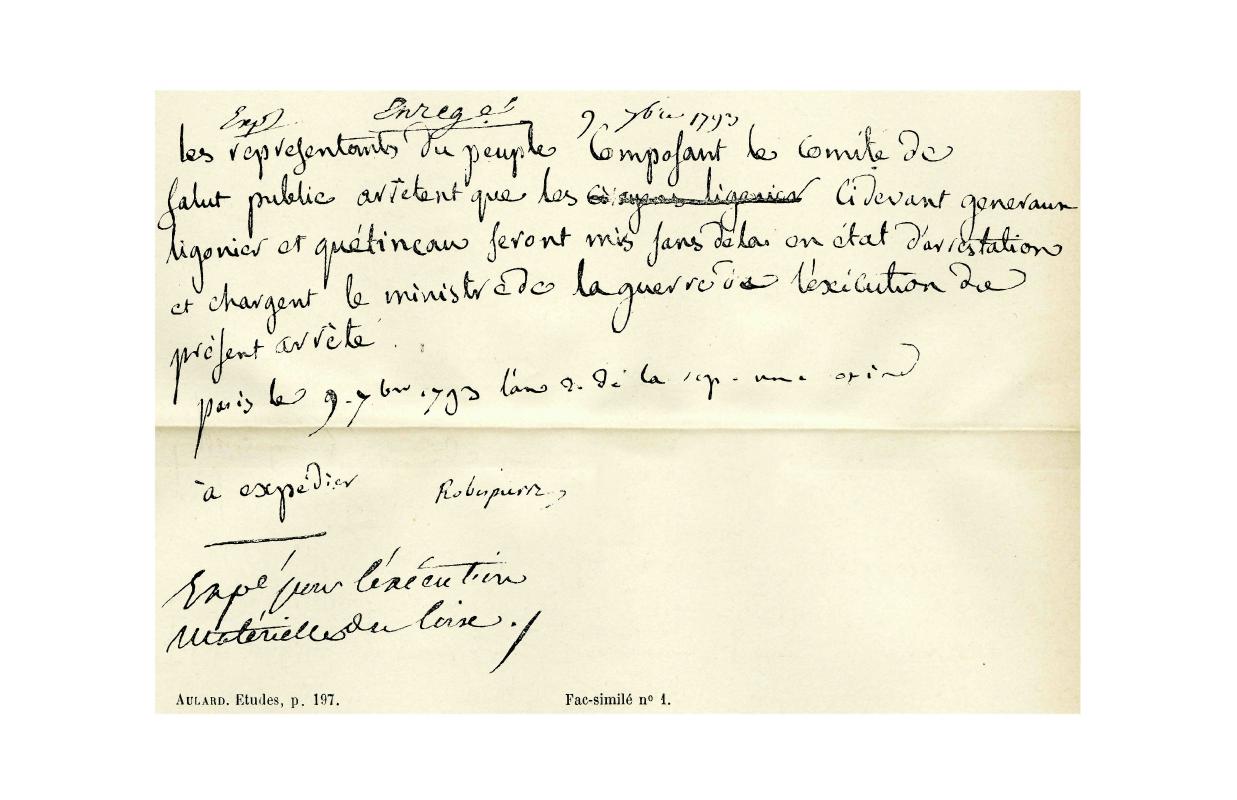 Expé Enregé 9 7bre 1793
les représentants du peuple Composant le Comité de
Salut public arrêtent que les citoyens ligonier Cidevant generaux
ligonier et quétineau seront mis sans délai en état d'arrestation
et chargent le ministre de la guerre de l'exécution du
présent arrêté
paris le 9. 7bre 1793 l'an 2. de la rep. une et ind
à expédier Robespierre
Expé pour l'exécution
Matérielle du
AULARD. Etudes, p. 197. Fac-similé nº 1.